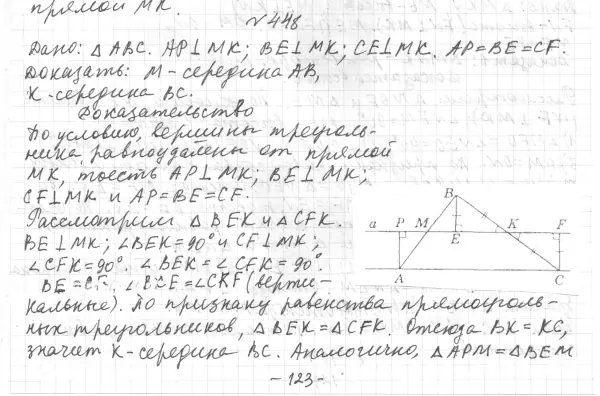 прямой МК.
№ 448
Дано: △ ABC. AP⊥MK; BE⊥MK; CE⊥MK. AP=BE=CF.
Доказать: M-середина AB,
K-середина BC.
Доказательство
По условию, вершины треуголь-
ника равноудалены от прямой
MK, тоесть AP⊥MK; BE⊥MK;
CF⊥MK и AP=BE=CF.
Рассмотрим △ BEK и △ CFK.
BE⊥MK; ∠BEK=90° и CF⊥MK;
∠CFK=90°. ∠BEK=∠CFK=90°.
BE=CF, =∠CKF (верти-
кальные). По признаку равенства прямоуголь-
ных треугольников, △BEK=△CFK. Отсюда BK=KC,
значит K-середина BC. Аналогично, △APM=△BEM
B
a P M K F
E
A C
-123-